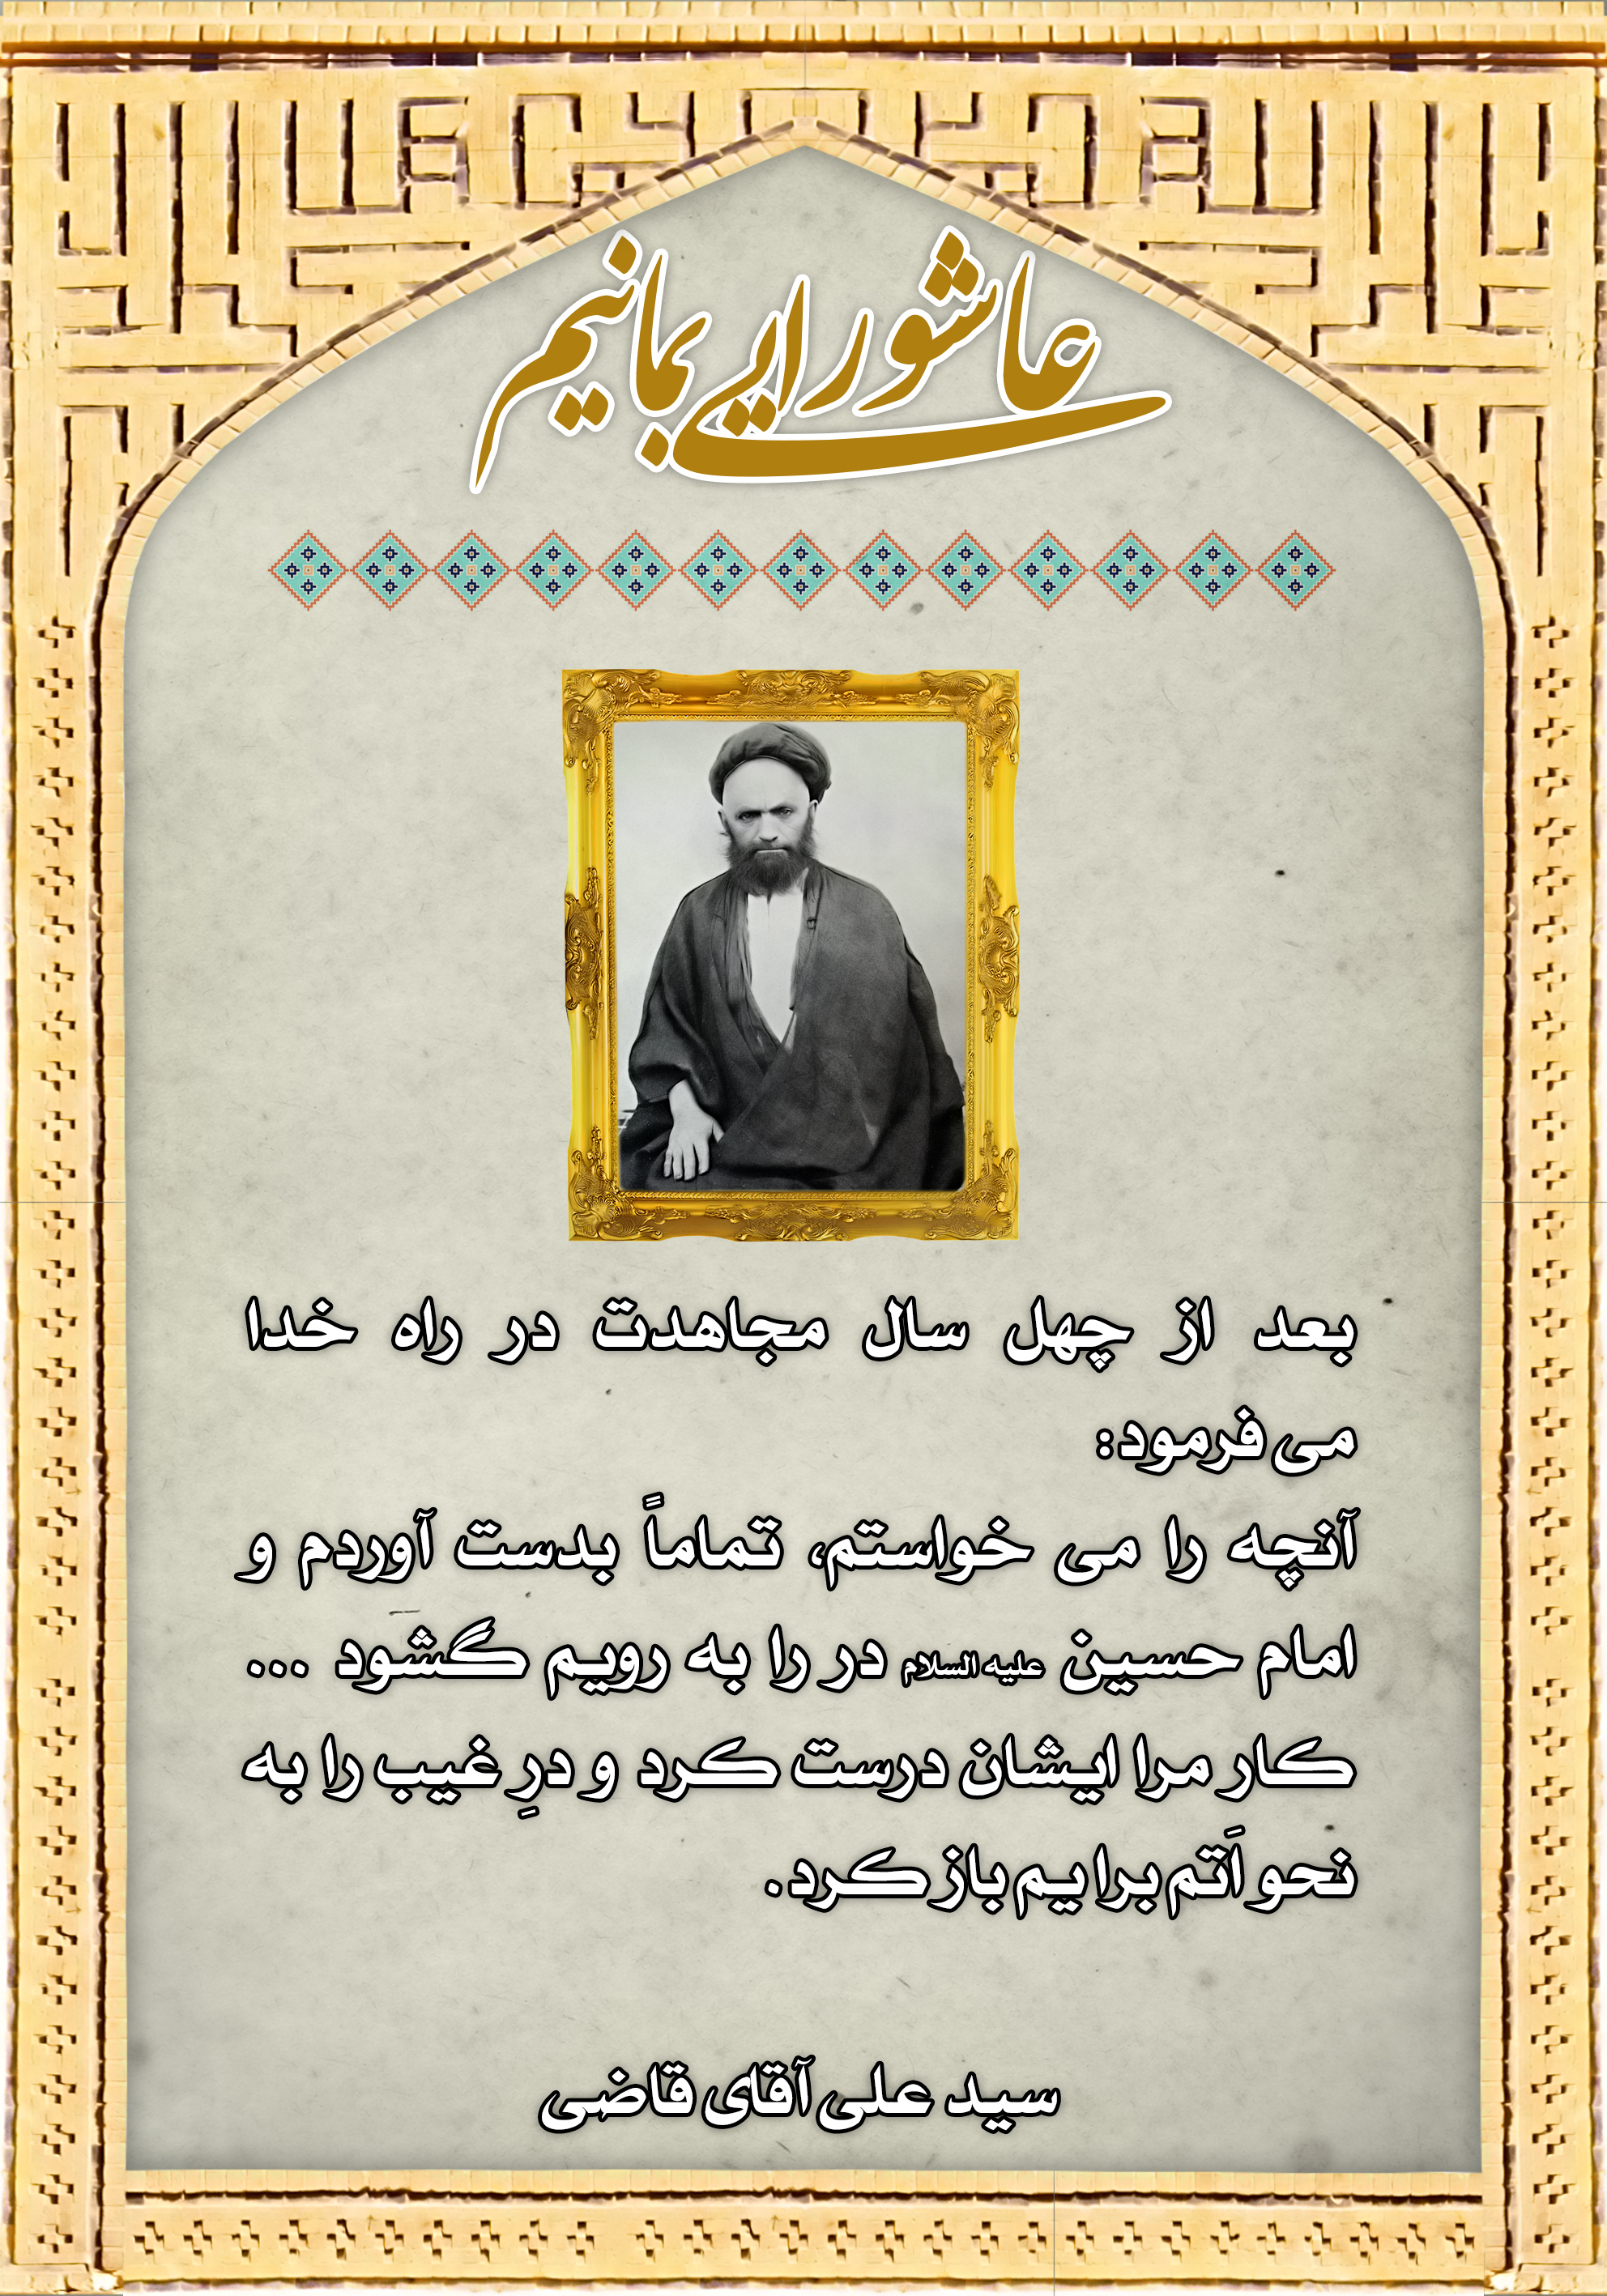 عاشورایی بمانیم
بعد از چهل سال مجاهدت در راه خدا
می فرمود:
آنچه را می خواستم، تماماً بدست آوردم و
امام حسین علیه السلام در را به رویم گشود ...
کار مرا ایشان درست کرد و درِ غیب را به
نحو اَتم برا یم باز کرد.
سید علی آقای قاضی